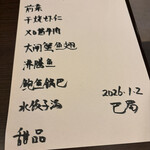 前菜
干烧虾仁
XO酱牛肉
大闸蟹鱼翅
沸腾鱼
鲍鱼锅巴
水饺子汤
甜品
2026.1.2